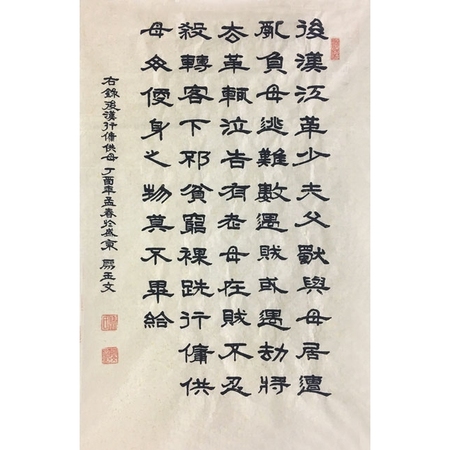 後漢江革少失父獨與母居遭
亂負母逃難數遇賊或遇劫將
去革輒泣告有老母在賊不忍
殺轉客下邳貧窮裸跣行傭供
母母便身之物莫不畢給
右錄後漢行傭供母丁酉年孟春於盛京 玉文